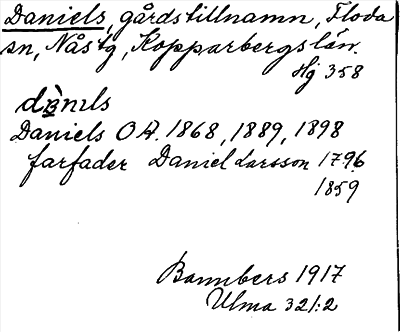 Daniels, gårdstillnamn, Floda
sn, Nås tg, Kopparbergs län.
Hj 358
Daniels O A. 1868, 1889, 1898
farfader Daniel Larsson 1796
1859
Bannbers 1917
Ulma 321:2